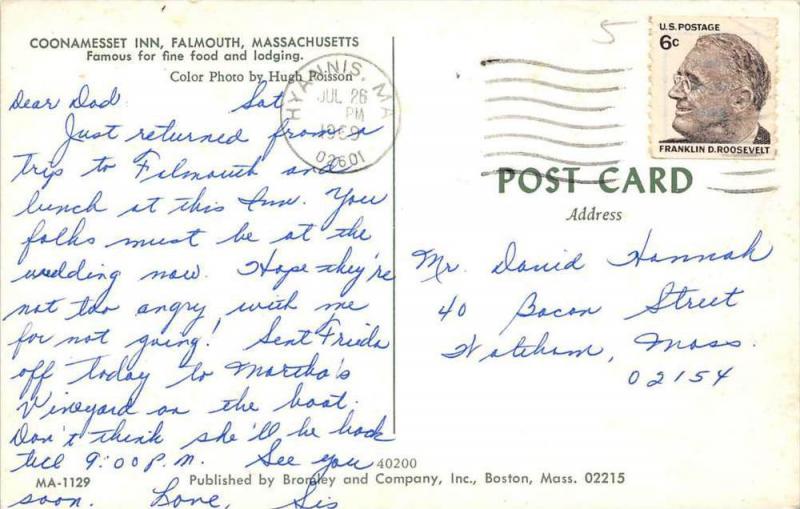 COONAMESSET INN, FALMOUTH, MASSACHUSETTS
Famous for fine food and lodging.
Color Photo by Hugh Poisson
Dear Dad Sat
Just returned from a
trip to Falmouth and
lunch at this Inn. You
folks must be at the
wedding now. Hope they're
not too angry with me
for not going! Sent Frieda
off today to Martha's
Vineyard on the boat.
Don't think she'll be back
till 9:00 P.M. See you
soon. Love, Sis
MA-1129
HYANNIS, MA
JUL 26
PM
1969
02601
5
U.S. POSTAGE
6c
FRANKLIN D. ROOSEVELT
POST CARD
Address
Mr. David Hannah
40 Bacon Street
Mass.
02154
40200
Published by Bromley and Company, Inc., Boston, Mass. 02215